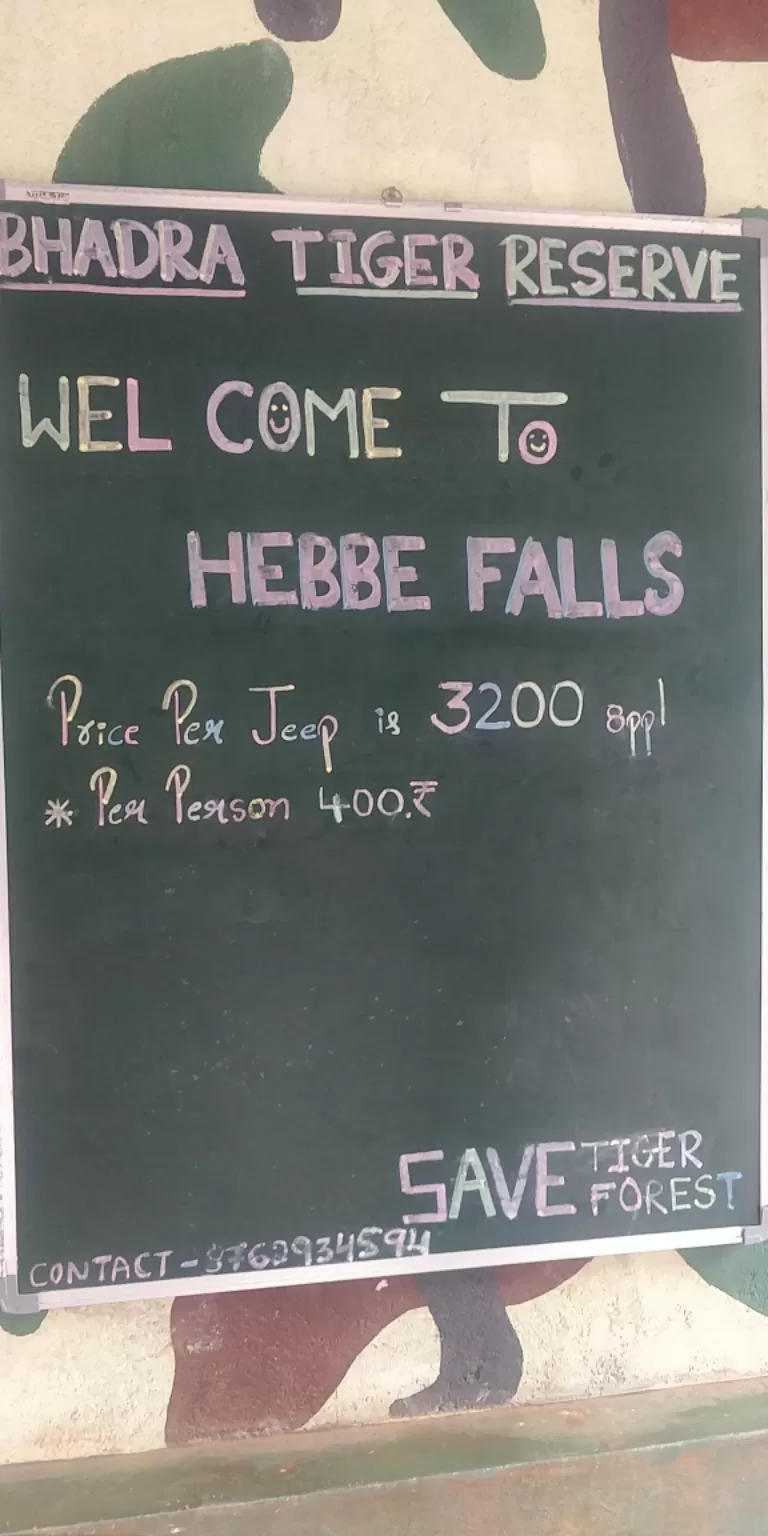 BHADRA TIGER RESERVE
WEL COME TO
HEBBE FALLS
Price Per Jeep is 3200 8ppl
* Per Person 400.₹
SAVE TIGER
FOREST
CONTACT -